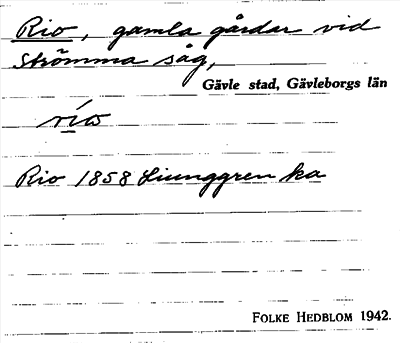 Rio, gamla gårdar vid
Strömma såg,
Gävle stad, Gävleborgs län
Rio 1858 Ljunggren ka
FOLKE HEDBLOM 1942.